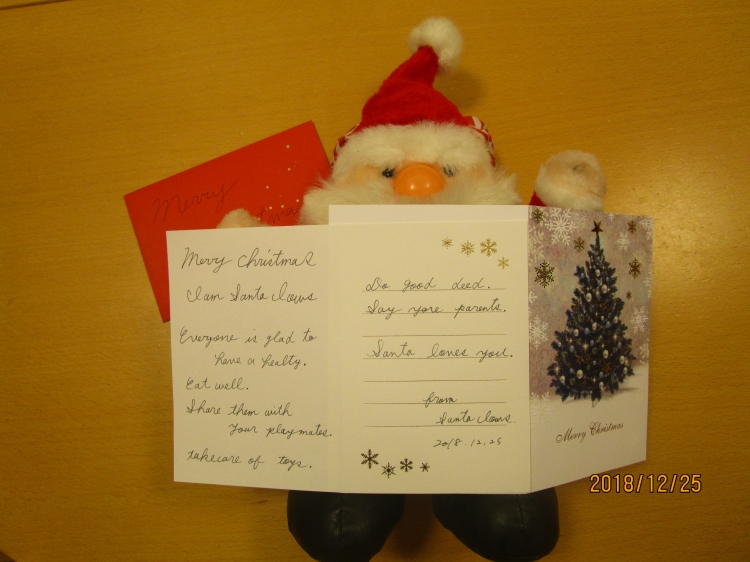 Merry
Merry Christmas
I am Santa Claws
Everyone is glad to
have a healty.
Eat well.
Share them with
Your playmates.
takecare of toys.
Do good deed.
Say yore parents.
Santa loves you.
from
Santa Claws
2018.12.25
Merry Christmas
2018/12/25